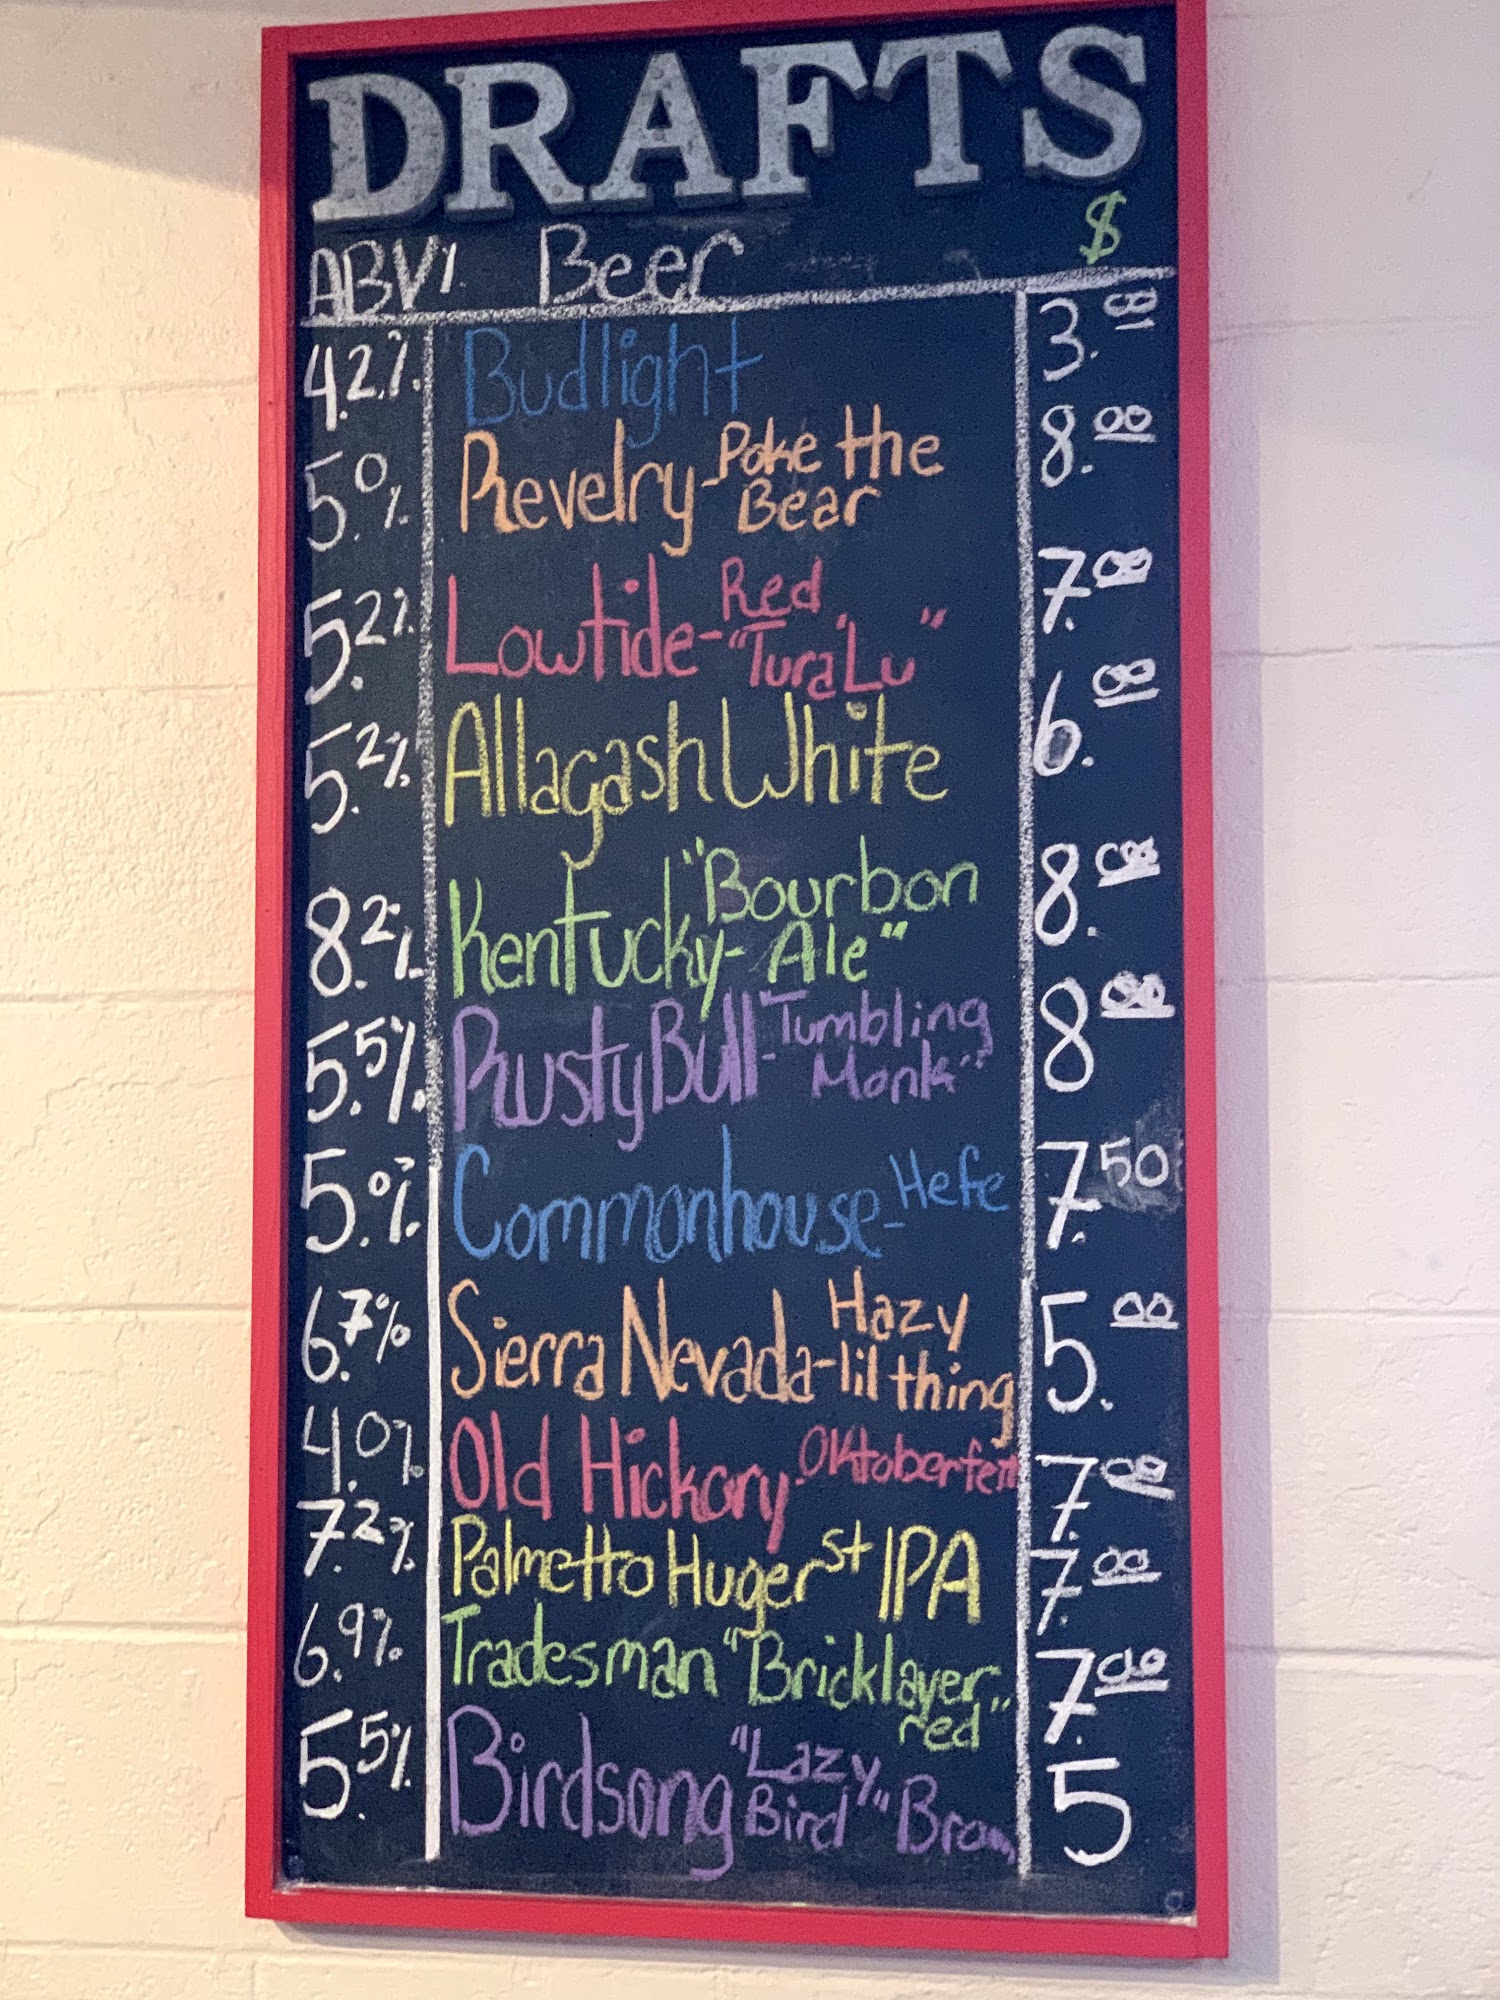 DRAFTS
ABV% Beer $
4.2% Budlight 3.00
5.0% Revelry - Poke the Bear 8.00
5.2% Lowtide - Red "Tura Lu" 7.00
5.2% Allagash White 6.00
8.2% Kentucky - "Bourbon Ale" 8.00
5.5% Rusty Bull - "Tumbling Monk" 8.00
5.0% Commonhouse - Hefe 7.50
6.7% Sierra Nevada - Hazy lil thing 5.00
4.0% Old Hickory - 7.00
7.2% Palmetto Huger st IPA 7.00
6.9% Tradesman "Bricklayer red" 7.00
5.5% Birdsong "Lazy Bird" 5